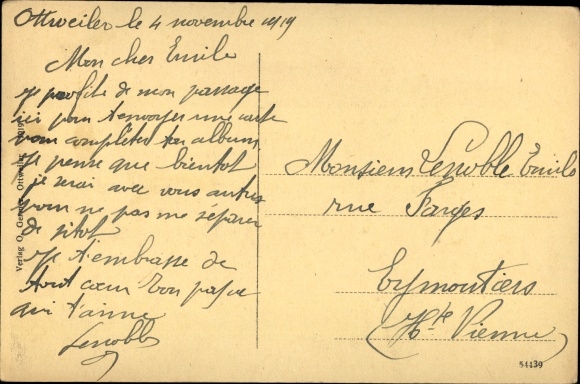 Ottweiler le 4 novembre 1919
Mon cher Emile
je profite de mon passage
ici pour t'envoyer une carte
pour compléter ton album
je pense que bientot
je serai avec vous autres
pour ne pas me séparer
de sitot
je t'embrasse de
tout cœur ton papa
qui t'aime
Lenoble
Monsieur Lenoble Emile
rue Farges
Eymoutiers
(Hte Vienne)
Verlag O. Ottweiler
54439